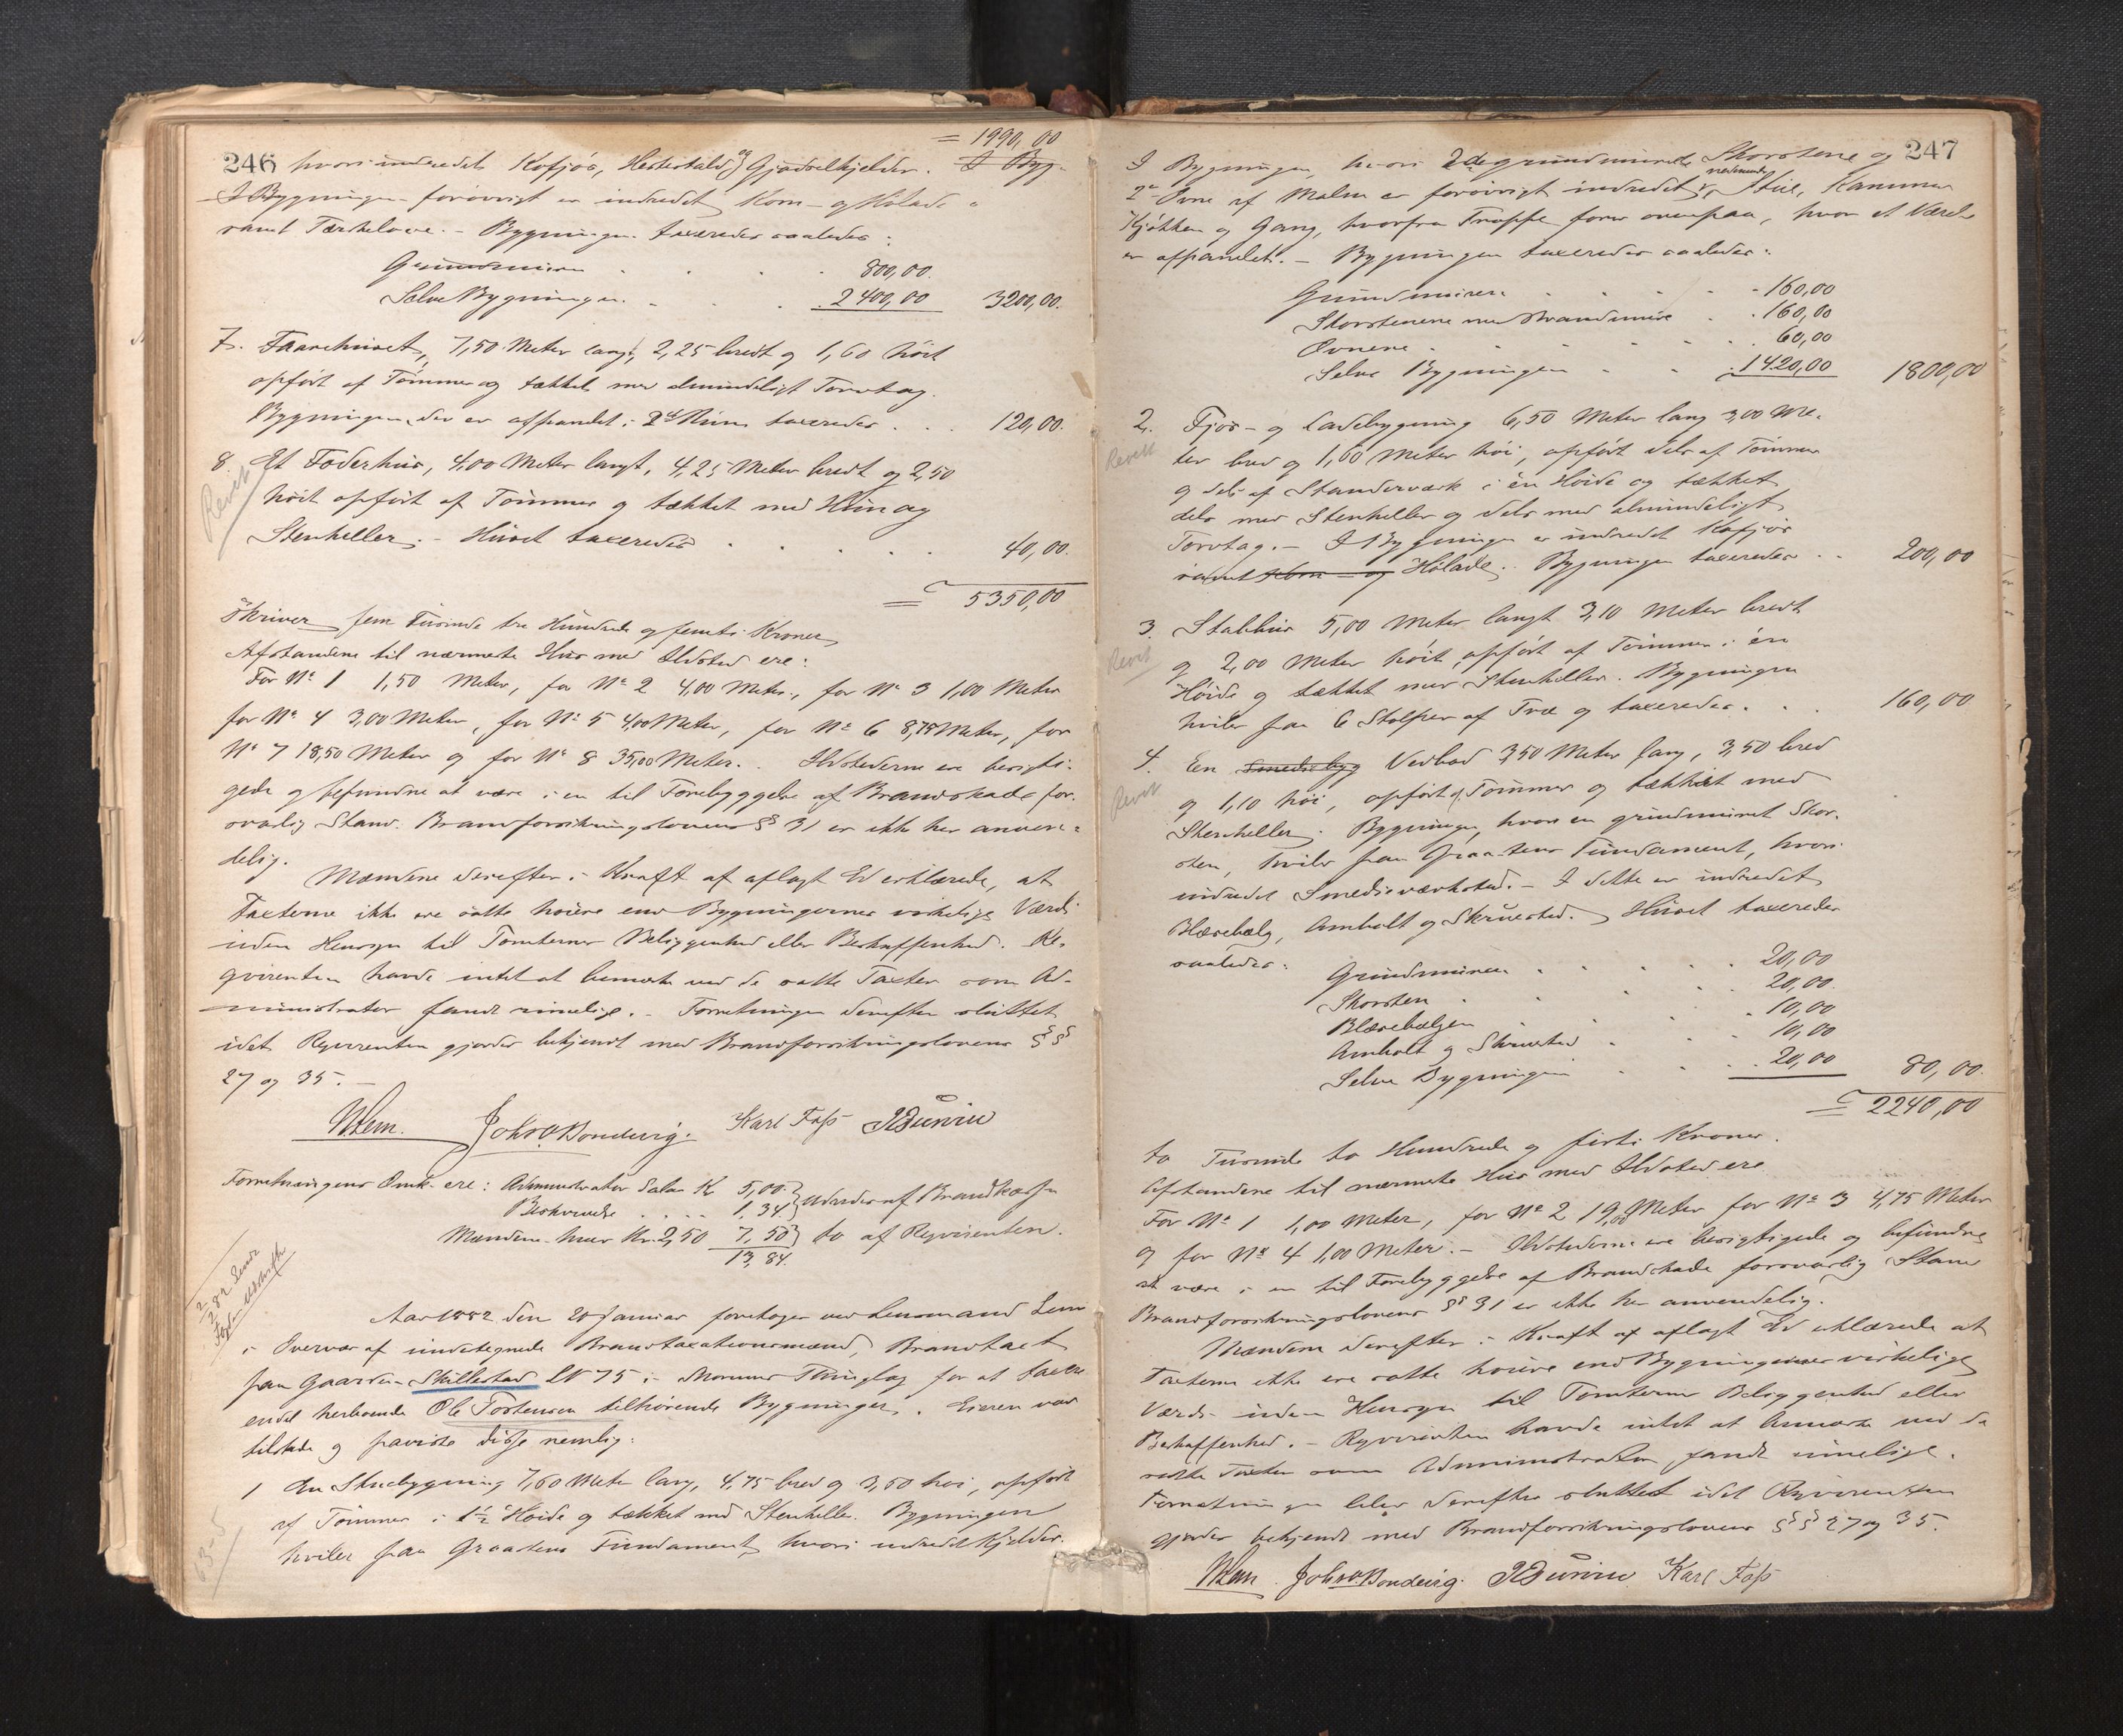 = 1990,00
246 hvori indredet Kofjøs, Hestestald og Gjødselkjelder. I Byg-
I Bygningen forøvrigt er indredet Korn- og Hølade
samt Tærskelove. - Bygningen taxeredes saaledes:
Grundmuren . . . 800,00.
Selve Bygningen . . . 2400,00 3200,00.
7. Faarehuset, 7,50 Meter langt, 2,25 bredt og 1,60 høit
opført af Tømmer og tækket med almindeligt Torvtag.
Bygningen, der er afpanelet i 2de Rum taxeredes . . . 120,00.
8. Et Foderhus, 4,00 Meter langt, 4,25 Meter bredt og 2,50
Revet
høit opført af Tømmer og tækket med Hun og
Stenheller. - Huset taxeredes . . . . . 40,00.
= 5350,00
Skriver fem Tusinde tre Hundrede og femti Kroner
Afstandene til nærmeste Hus med Ildsted ere:
For No 1 1,50 Meter, for No 2 4,00 Meter, for No 3 1,00 Meter
for No 4 3,00 Meter, for No 5 4,00 Meter, for No 6 8,75 Meter, for
No 7 18,50 Meter og for No 8 35,00 Meter. Ildstederne ere besigti-
gede og befundne at være i en til Forebyggelse af Brandskade for-
svarlig Stand. Brandforsikringslovens §§ 31 er ikke her anven-
delig.
Mændene derefter i Kraft af aflagt Ed erklærede, at
Taxterne ikke ere satte høiere end Bygningernes virkelige Værdi
uden Hensyn til Tomternes Beliggenhed eller Beskaffenhed. Re-
qvirenten havde intet at bemærke ved de satte Taxter som Ad-
ministrator fandt rimelige. - Forretningen derefter sluttet
idet Rqvirenten gjordes bekjendt med Brandforsikringslovens §§
27 og 35. -
Lem. Johs O Bondevig. Karl Foss
Forretningens Omk. ere: Administrator Salær Kr 5,00 } udredes af Brandkassen
Beskrivelse . . . . 1,34. }
Mændene hver Kr. 2,50 7,50 } do af Reqvirenten.
13,84.
2/3 82 Sendt
Aar 1882 den 20 Januar foretoges ved Lensmand Lem
i Overvær af undertegnede Brandtaxationsmænd, Brandtaxt
paa Gaarden Skillestad LN 75 i Thinglag for at taxere
endel herboende Ole Torstensen tilhørende Bygninger. Eieren var
tilstede og paaviste disse nemlig:
1 En Stuebygning 7,60 Meter lang, 4,75 bred og 3,50 høi, opført
af Tømmer i 1½ Høide og tækket med Stenheller. Bygningen
hviler paa Graastens Fundament, hvori indredet Kjelder.
247
I Bygningen, hvori 2de grundmurede Skorstene og
2de Ovne af Malm er forøvrigt indredet nedenunder Stue, Kammer
Kjøkken og Gang, hvorfra Trappe fører ovenpaa, hvor et Værelse
er afpanelet. - Bygningen taxeredes saaledes:
Grundmuren . . . . 160,00
Skorstenene med Brandmure . . 160,00
Ovnene . . . . . 60,00
Selve Bygningen . . 1420,00 1800,00
2. Fjøs- og Ladebygning 6,50 Meter lang 3,00 Me-
Revet
ter bred og 1,60 Meter høi, opført dels af Tømmer
og dels af Standerværk i èn Høide og tækket
dels med Stenheller og dels med almindeligt
Torvtag. - I Bygningen er indredet Kofjøs
samt Korn- og Hølade. Bygningen taxeredes . . 200,00
3. Stabbur 5,00 Meter langt 3,10 Meter bredt
Revet
og 2,00 Meter høit, opført af Tømmer i èn
Høide og tækket med Stenheller. Bygningen
hviler paa 6 Stolper af Træ og taxeredes . . . 160,00
4. En Smediebyg Vedbod 3,50 Meter lang, 3,50 bred
Revet
og 1,10 høi, opført af Tømmer og tækket med
Stenheller. Bygningen, hvori en grundmuret Skor-
sten, hviler paa Graastens Fundament, hvori
indredet Smedieværksted. - I dette er indredet
Blæsebælg, Ambolt og Skruested. Huset taxeredes
saaledes:
Grundmuren . . . . 20,00
Skorsten . . . . 20,00.
Blæsebælgen . . . 10,00
Ambolt og Skruested . . . 10,00
Selve Bygningen . . . 20,00 80,00.
= 2240,00
to Tusinde to Hundrede og firti Kroner.
Afstandene til nærmeste Hus med Ildsted ere
For No 1 1,00 Meter, for No 2 19,00 Meter for No 3 4,75 Meter
og for No 4 1,00 Meter. - Ildstederne ere besigtigede og befundne
at være i en til Forebyggelse af Brandskade forsvarlig Stand
Brandforsikringslovens §§ 31 er ikke her anvendelig.
Mændene derefter i Kraft af aflagt Ed erklærede at
Taxterne ikke ere satte høiere end Bygningernes virkelige
Værdi uden Hensyn til Tomternes Beliggenhed eller
Beskaffenhed. - Rqvirenten havde intet at anmærke ved de
satte Taxter som Administrator fandt rimelige.
Forretningen blev derefter sluttet idet Rqvirenten
gjordes bekjendt med Brandforsikringslovens §§ 27 og 35.
Lem Johs O Bondevig. Karl Foss